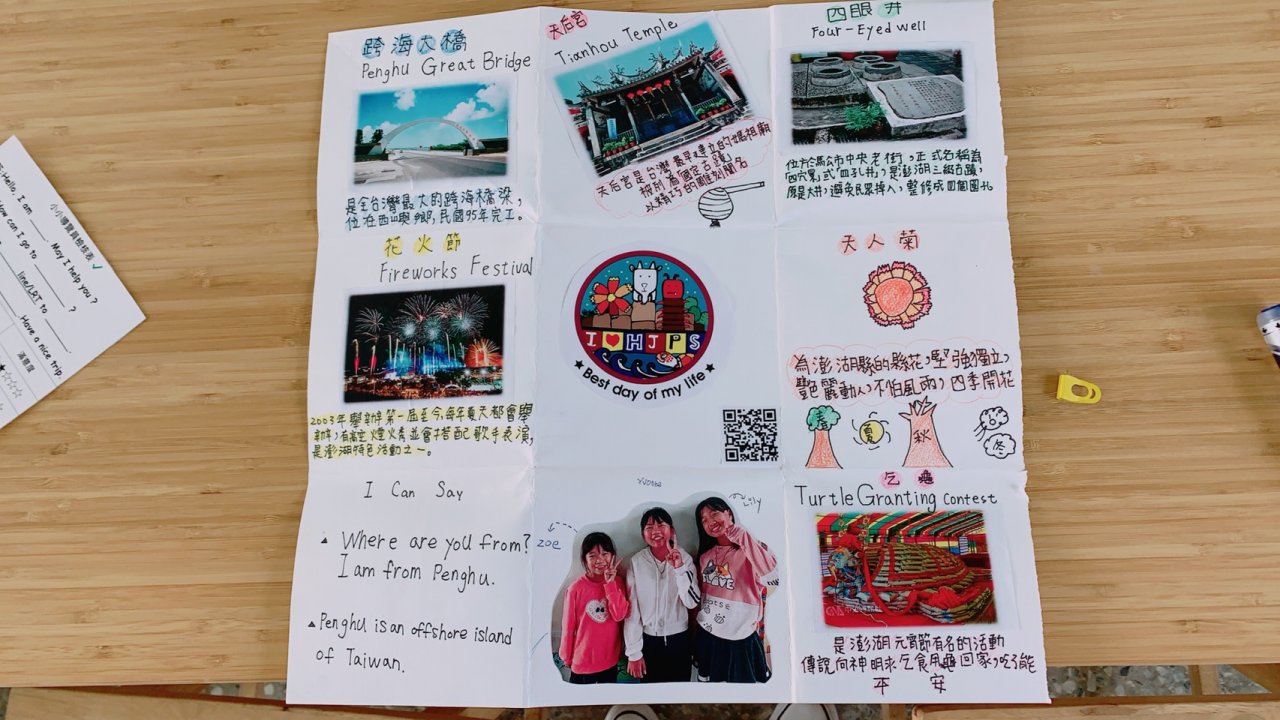 跨海大橋
Penghu Great Bridge
是全台灣最大的跨海橋梁,
位在西嶼鄉,民國95年完工。
天后宮
Tianhou Temple
天后宮是台灣最早建立的媽祖廟
以精巧的雕刻聞名
四眼井
Four-Eyed well
位於馬公市中央老街,正式名稱為
是澎湖三級古蹟,
原是大井,避免民眾掉入,整修成四個圓孔
花火節
Fireworks Festival
2003年舉辦第一屆至今,每年夏天都會舉
辦,有高空煙火秀並會搭配歌手表演,
是澎湖特色活動之一。
I ♥ HJPS
★ Best day of my life ★
天人菊
為澎湖縣的縣花,堅強獨立,
艷麗動人,不怕風雨,四季開花
春
夏
秋
冬
I Can Say
▲ Where are you from?
I am from Penghu.
▲ Penghu is an offshore island
of Taiwan.
zoe
Lily
乞龜
Turtle Granting contest
是澎湖元宵節有名的活動
傳說向神明求乞食用龜回家,吃了能
平安
小小導覽員檢核表 ✓
Hello, I am ____ May I help you?
How can I go to ____?
line/LRT to ____
Have a nice trip
滿意度